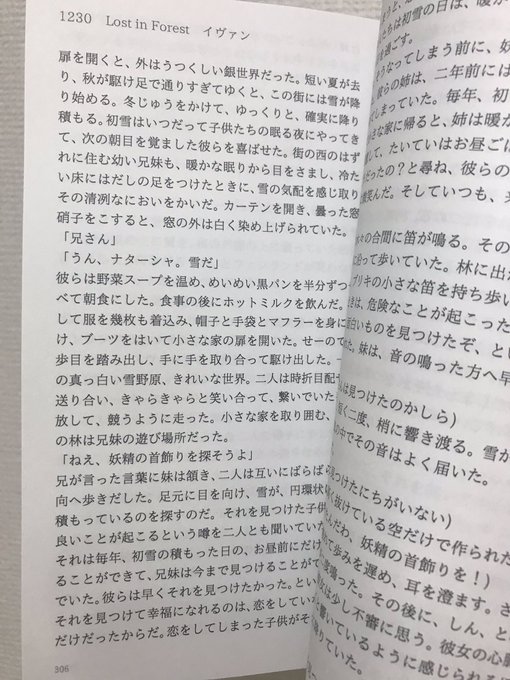 1230 Lost in Forest イヴァン
扉を開くと、外はうつくしい銀世界だった。短い夏が去
り、秋が駆け足で通りすぎてゆくと、この街には雪が降
り始める。冬じゅうをかけて、ゆっくりと、確実に降り
積もる。初雪はいつだって子供たちの眠る夜にやってき
て、次の朝目を覚ました彼らを喜ばせた。街の西のはず
れに住む幼い兄妹も、暖かな眠りから目をさまし、冷た
い床にはだしの足をつけたときに、雪の気配を感じ取り
その清冽なにおいをかいだ。カーテンを開き、曇った窓
硝子をこすると、窓の外は白く染め上げられていた。
「兄さん」
「うん、ナターシャ。雪だ」
彼らは野菜スープを温め、めいめい黒パンを半分ずつ
べて朝食にした。食事の後にホットミルクを飲んだ。
して服を幾枚も着込み、帽子と手袋とマフラーを身に
け、ブーツをはいて小さな家の扉を開いた。せーので
歩目を踏み出し、手に手を取り合って駆け出した。
の真っ白い雪野原、きれいな世界。二人は時折目配
送り合い、きゃらきゃらと笑い合って、繋いでいた
放して、競うように走った。小さな家を取り囲む、
の林は兄妹の遊び場所だった。
「ねえ、妖精の首飾りを探そうよ」
兄が言った言葉に妹は頷き、二人は互いにばらばら
向へ歩きだした。足元に目を向け、雪が、円環状
積もっているのを探すのだ。それを見つけた子供
良いことが起こるという噂を二人とも聞いていた
それは毎年、初雪の積もった日の、お昼前にだけ
ることができて、兄妹は今まで見つけることがで
でいた。彼らは早くそれを見つけたかった。という
それを見つけて幸福になれるのは、恋をしていな
だけだったからだ。恋をしてしまった子供がそ
306
ちは初雪の日は、暖か
を過ごす。
なってしまう前に、妖
彼らの姉は、二年前に
てしまっていた。毎年、初
さな家に帰ると、姉は暖か
して、たいていはお昼ごに
だったの？と尋ね、彼らの
微笑んだ。そしていつも、
々の合間に笛が鳴る。その
沿って歩いていた。林に出
ブリキの小さな笛を持ち歩い
は、危険なことが起こった
白いものを見つけたぞ、とい
た。妹は、音の鳴った方へ早
んは見つけたのかしら）
短く二度、梢に響き渡る。雪が
の中でその音はよく届いた。
見つけたにちがいない）
抜けている空だけで作られた
んだわ、妖精の首飾りを！）
て歩みを遅め、耳を澄ます。さ
度鳴った。その後に、しん、と
は少し不審に思う。彼女の心臓
いているように感じられる